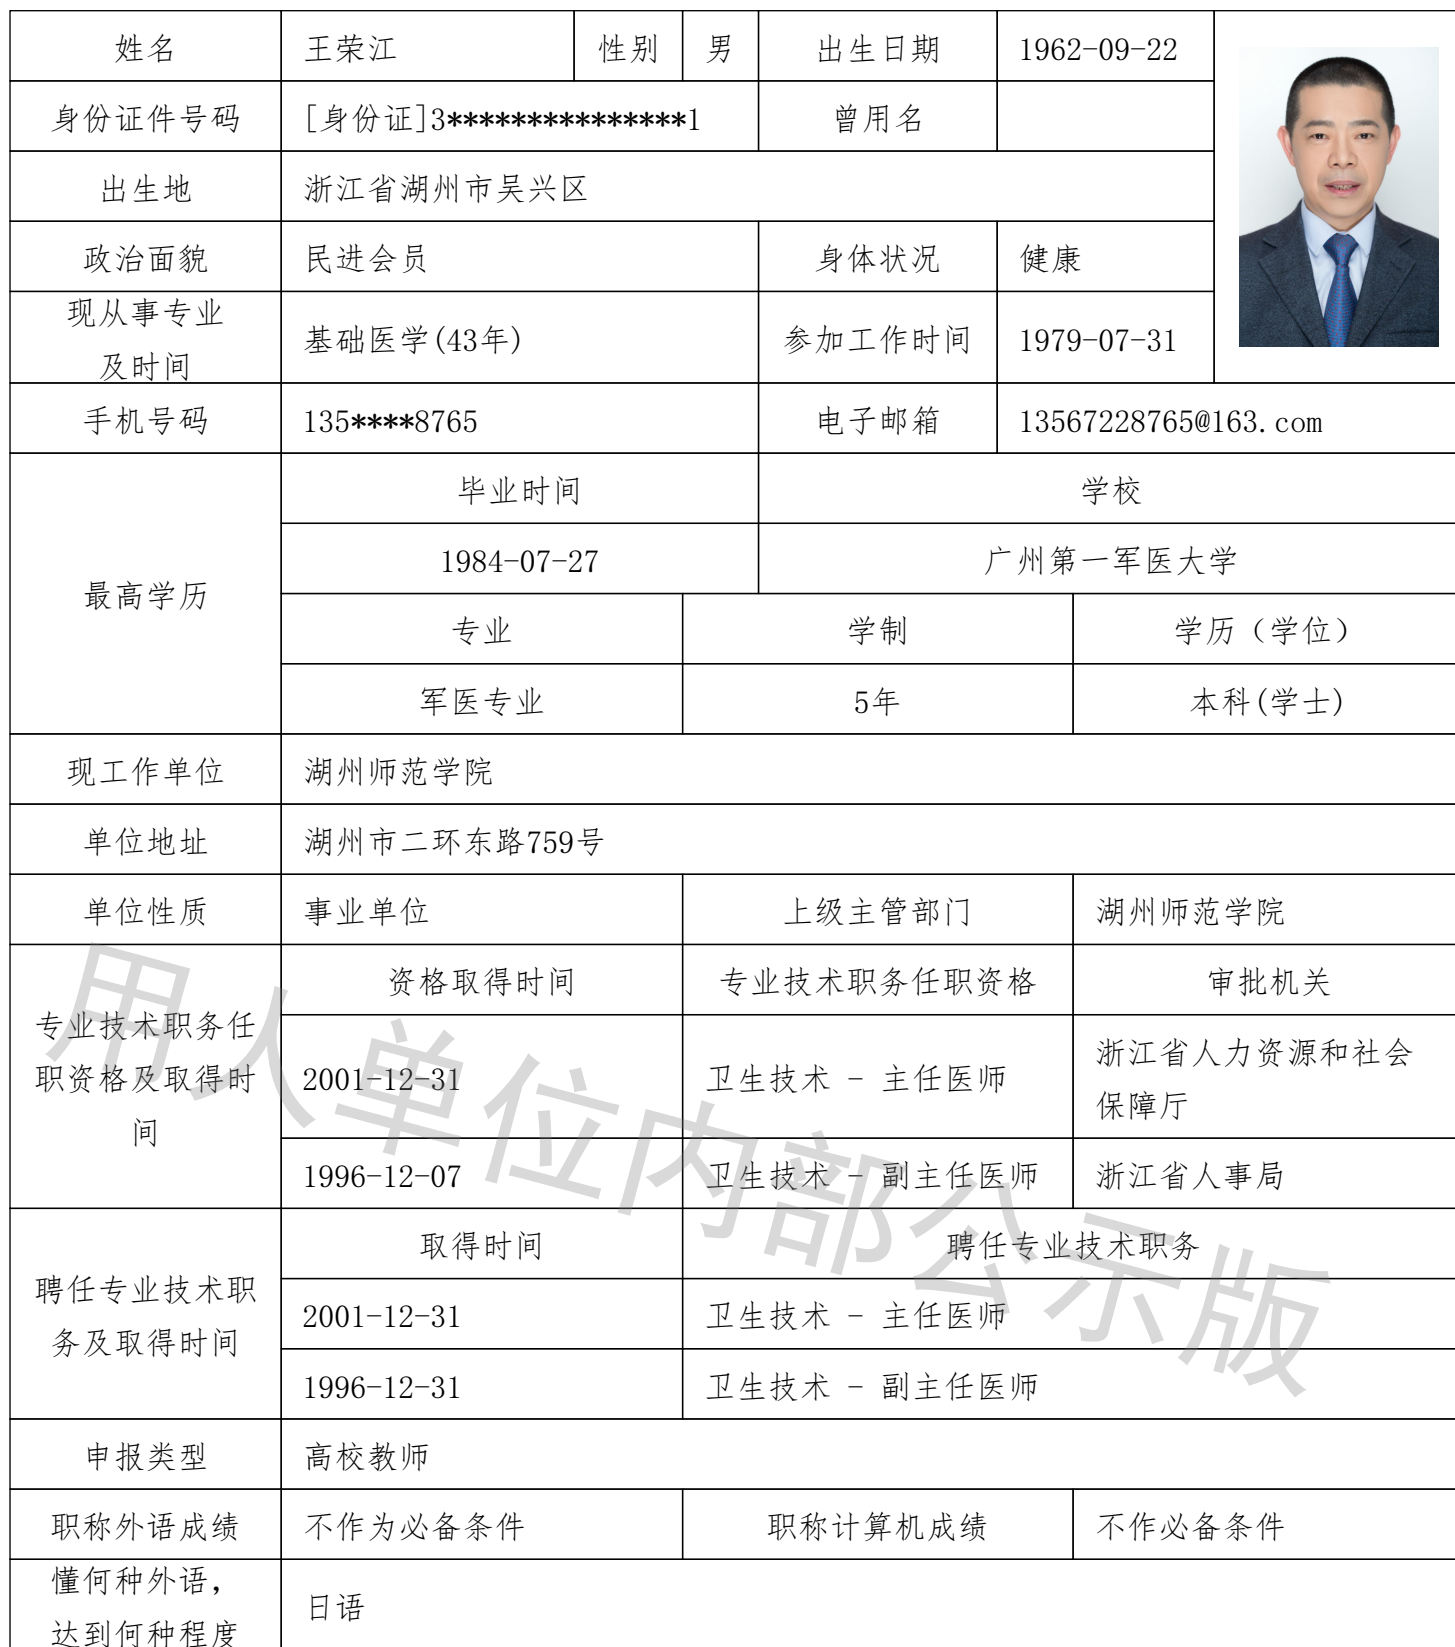 姓名 王荣江 性别 男 出生日期 1962-09-22
身份证件号码 [身份证]3***************1 曾用名
出生地 浙江省湖州市吴兴区
政治面貌 民进会员 身体状况 健康
现从事专业
及时间
基础医学(43年) 参加工作时间 1979-07-31
手机号码 135****8765 电子邮箱 13567228765@163.com
最高学历
毕业时间 学校
1984-07-27 广州第一军医大学
专业 学制 学历（学位）
军医专业 5年 本科(学士)
现工作单位 湖州师范学院
单位地址 湖州市二环东路759号
单位性质 事业单位 上级主管部门 湖州师范学院
专业技术职务任
职资格及取得时
间
资格取得时间 专业技术职务任职资格 审批机关
2001-12-31 卫生技术 - 主任医师 浙江省人力资源和社会
保障厅
1996-12-07 卫生技术 - 副主任医师 浙江省人事局
聘任专业技术职
务及取得时间
取得时间 聘任专业技术职务
2001-12-31 卫生技术 - 主任医师
1996-12-31 卫生技术 - 副主任医师
申报类型 高校教师
职称外语成绩 不作为必备条件 职称计算机成绩 不作必备条件
懂何种外语，
达到何种程度
日语
用人单位内部公示版